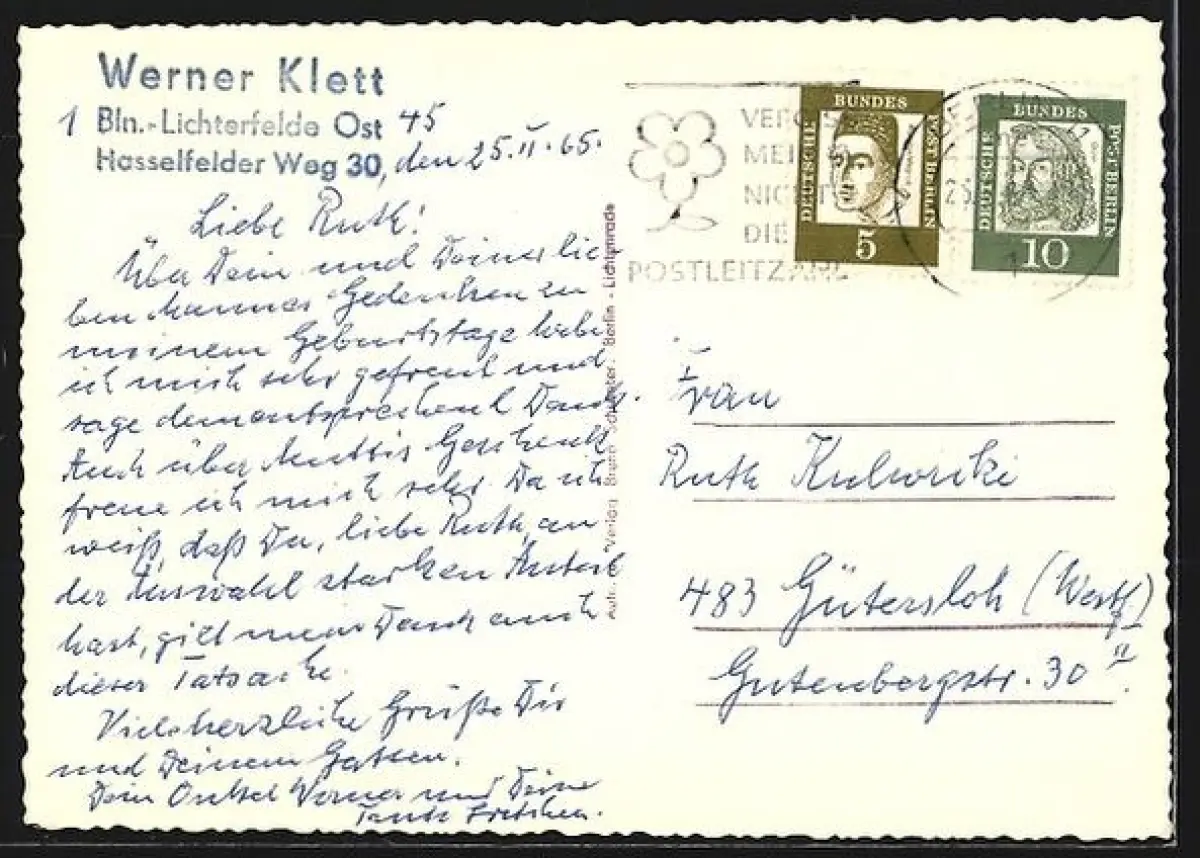 Werner Klett
1 Bln.-Lichterfelde Ost 45
Hasselfelder Weg 30, den 25.II.65.
Liebe Ruth!
Über Dein und Deines lie-
ben Mannes Gedenken zu
meinem Geburtstage habe
ich mich sehr gefreut und
sage dementsprechend Dank.
Auch über Muttis Geschenk
freue ich mich sehr. Da ich
weiß, daß Du, liebe Ruth, an
der Auswahl starken Anteil
hast, gilt mein Dank auch
dieser Tatsache.
Viele herzliche Grüße Dir
und Deinem Gatten.
Dein Onkel Werner und Deine
Tante Gretchen.
Verlag Bruno Schroeter, Berlin - Lichtenrade
MEI
NICHT
DIE
POSTLEITZAHL
DEUTSCHE BUNDES POST BERLIN
5
DEUTSCHE BUNDES POST BERLIN
10
Frau
Ruth
483 Gütersloh (Westf.)
Gutenbergstr. 30 II.